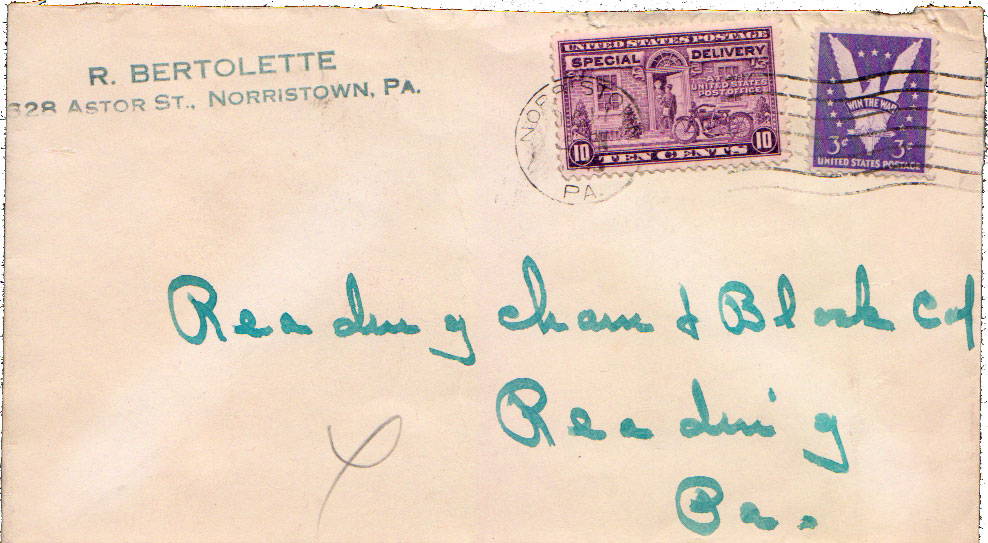 R. BERTOLETTE
328 ASTOR ST., NORRISTOWN, PA.
UNITED STATES POSTAGE
SPECIAL DELIVERY
AT ANY
UNITED STATES
POST OFFICE
10 TEN CENTS 10
NORRISTOWN
PA.
WIN THE WAR
3¢ 3¢
UNITED STATES POSTAGE
Reading Chain & Block Co
Reading
Pa.